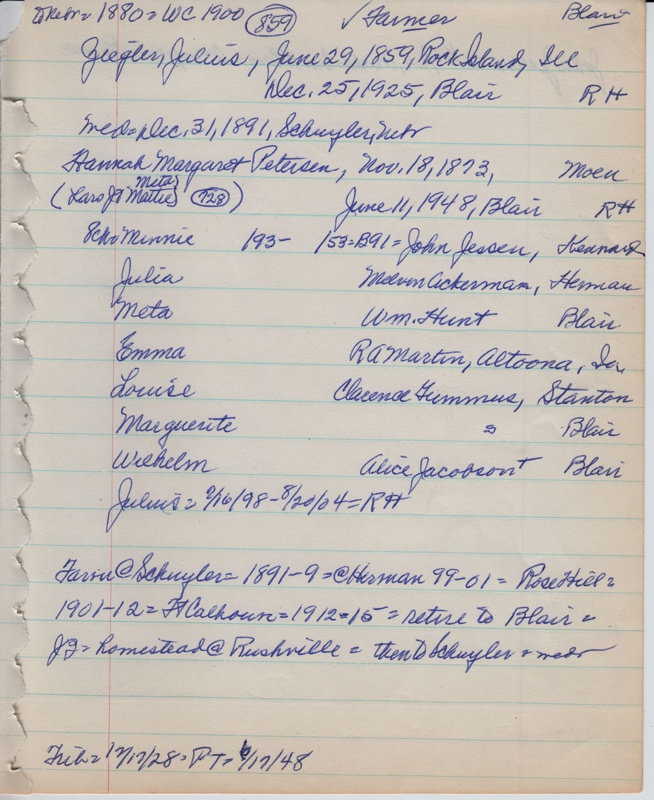 to Nebr = 1880 = WC 1900 859 ✓ Farmer Blair
Ziegler, Julius, June 29, 1859, Rock Island, Ill
Dec. 25, 1925, Blair RH
med = Dec. 31, 1891, Schuyler, Nebr
Hannah Margaret Petersen, Nov. 18, 1873, Moen
(Lars J & Mattie Meta 728) June 11, 1948, Blair RH
8ch = Minnie 193- 153=B91= John Jessen, Kennard
Julia Melvin Ackerman, Herman
Meta Wm. Hunt Blair
Emma R A Martin, Altoona, Ia.
Louise Clarence Fummus, Stanton
Marguerite Blair
Wilhelm Alice Jacobson Blair
Julius = 9/16/98 - 8/20/04 = RH
Farm @ Schuyler = 1891-9 = @ Herman 99-01 = Rose Hill =
1901-12 = Ft Calhoun = 1912-15 = retire to Blair =
JZ = homestead @ Rushville = then to Schuyler = med
Trib = 12/17/28 = PT = 6/17/48